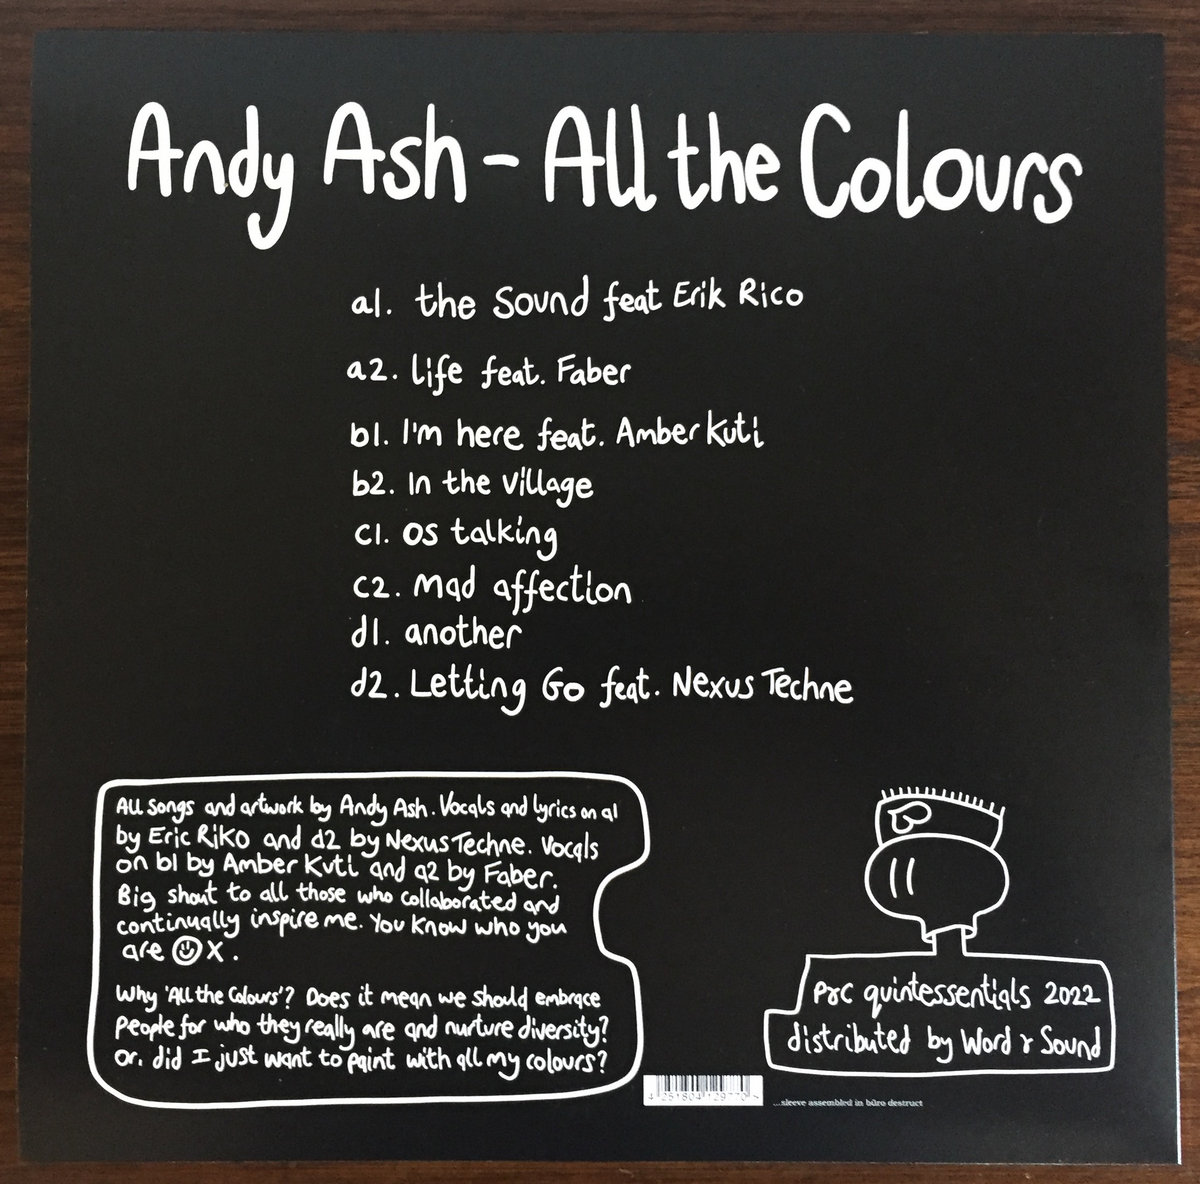 Andy Ash - All the Colours
a1. the Sound feat Erik Rico
a2. life feat. Faber
b1. I'm here feat. Amber Kuti
b2. In the village
c1. os talking
c2. mad affection
d1. another
d2. Letting Go feat. Nexus Techne
All songs and artwork by Andy Ash. Vocals and lyrics on a1
by Eric Riko and d2 by Nexus Techne. Vocals
on b1 by Amber Kuti and a2 by Faber.
Big shout to all those who collaborated and
continually inspire me. You know who you
are ☺ x.
Why 'All the Colours'? Does it mean we should embrace
people for who they really are and nurture diversity?
Or, did I just want to paint with all my colours?
p&c quintessentials 2022
distributed by Word & Sound
4 251804 129770
...sleeve assembled in büro destruct